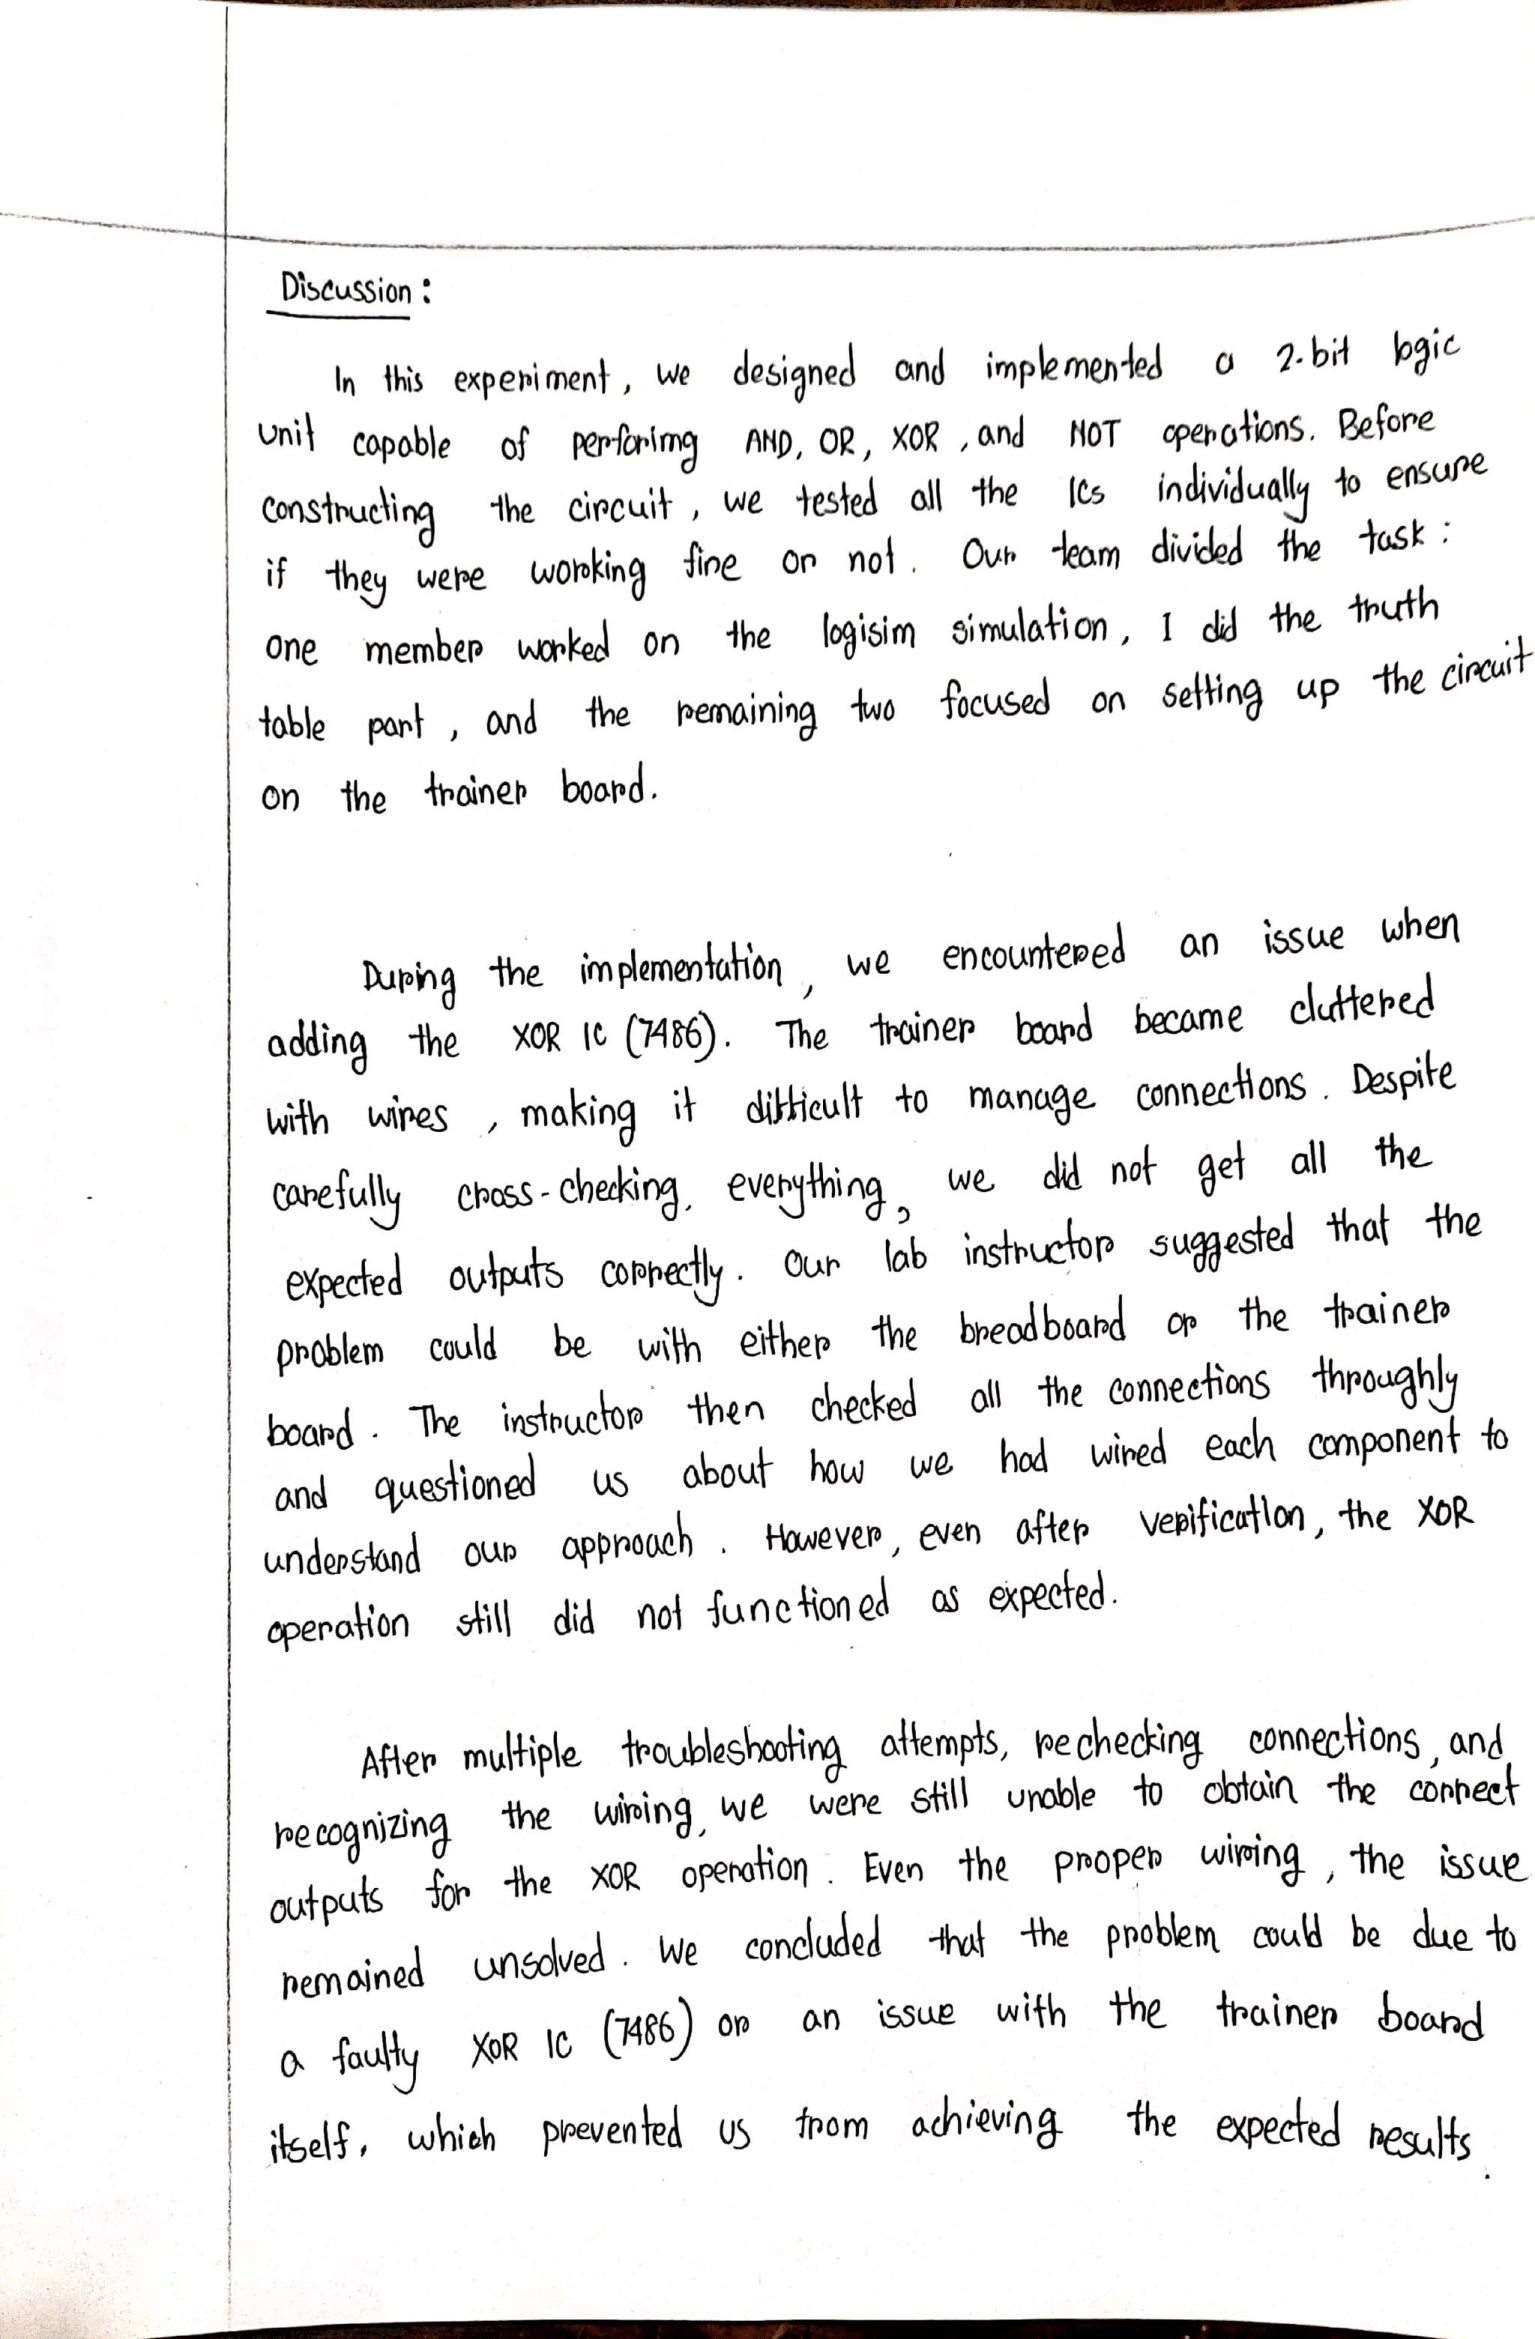 Discussion :
In this experiment, we designed and implemented a 2-bit logic
unit capable of perforimg AND, OR, XOR, and NOT operations. Before
constructing the circuit, we tested all the ICs individually to ensure
if they were working fine or not. Our team divided the task :
one member worked on the logisim simulation, I did the truth
table part, and the remaining two focused on setting up the circuit
on the trainer board.
During the implementation, we encountered an issue when
adding the XOR IC (7486). The trainer board became cluttered
with wires, making it difficult to manage connections. Despite
carefully cross-checking, everything, we did not get all the
expected outputs correctly. Our lab instructor suggested that the
problem could be with either the breadboard or the trainer
board. The instructor then checked all the connections throughly
and questioned us about how we had wired each component to
understand our approach. However, even after verification, the XOR
operation still did not functioned as expected.
After multiple troubleshooting attempts, rechecking connections, and
recognizing the wiring, we were still unable to obtain the correct
outputs for the XOR operation. Even the proper wiring, the issue
remained unsolved. We concluded that the problem could be due to
a faulty XOR IC (7486) or an issue with the trainer board
itself, which prevented us from achieving the expected results.